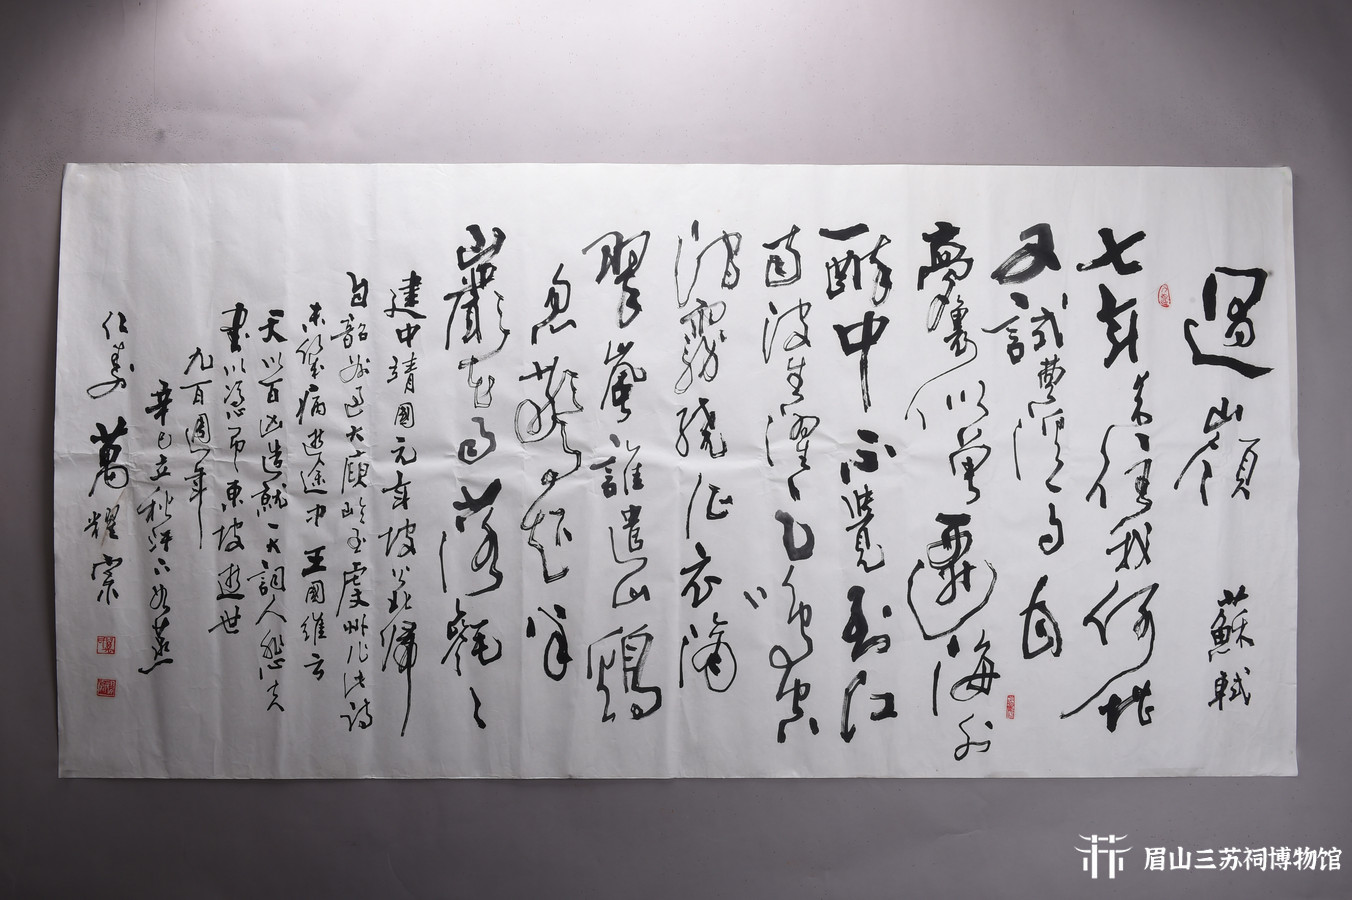 過嶺 蘇軾
七年來往我何堪
又試曹溪一勺甘
夢裏似曾遷海外
醉中不覺到江
南波生濯足鳴空
澗霧繞征衣滴
翠嵐誰遣山鷄
忽驚起半
巖花雨落毿毿
建中靖國元年坡公北歸
自韶州過大庾嶺至虔州作此詩
未幾病逝途中王國維云
天以百凶造就一大詞人悲夫
書以憑弔東坡逝世
九百週年
辛巳立秋汗下如蒸
仁壽萬耀宗
眉山三苏祠博物馆